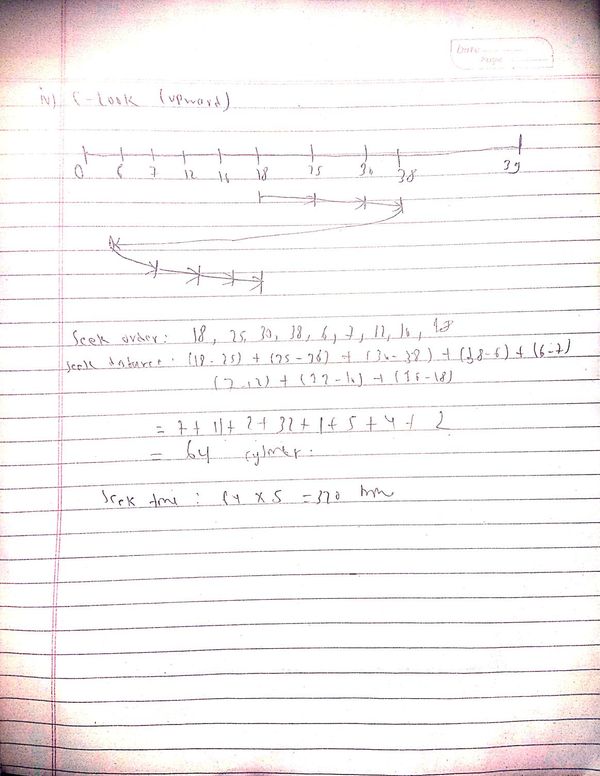 Date
Page
iv) C-Look (upward)
0 6 7 12 16 18 25 36 38 39
Seek order: 18, 25, 38, 6, 7, 12, 16, 18
Seek distance: (18-25) + (25-36) + (36-38) + (38-6) + (6-7)
(7-12) + (12-16) + (16-18)
= 7 + 11 + 2 + 32 + 1 + 5 + 4 + 2
= 64
Seek time: 64 x 5 = 320